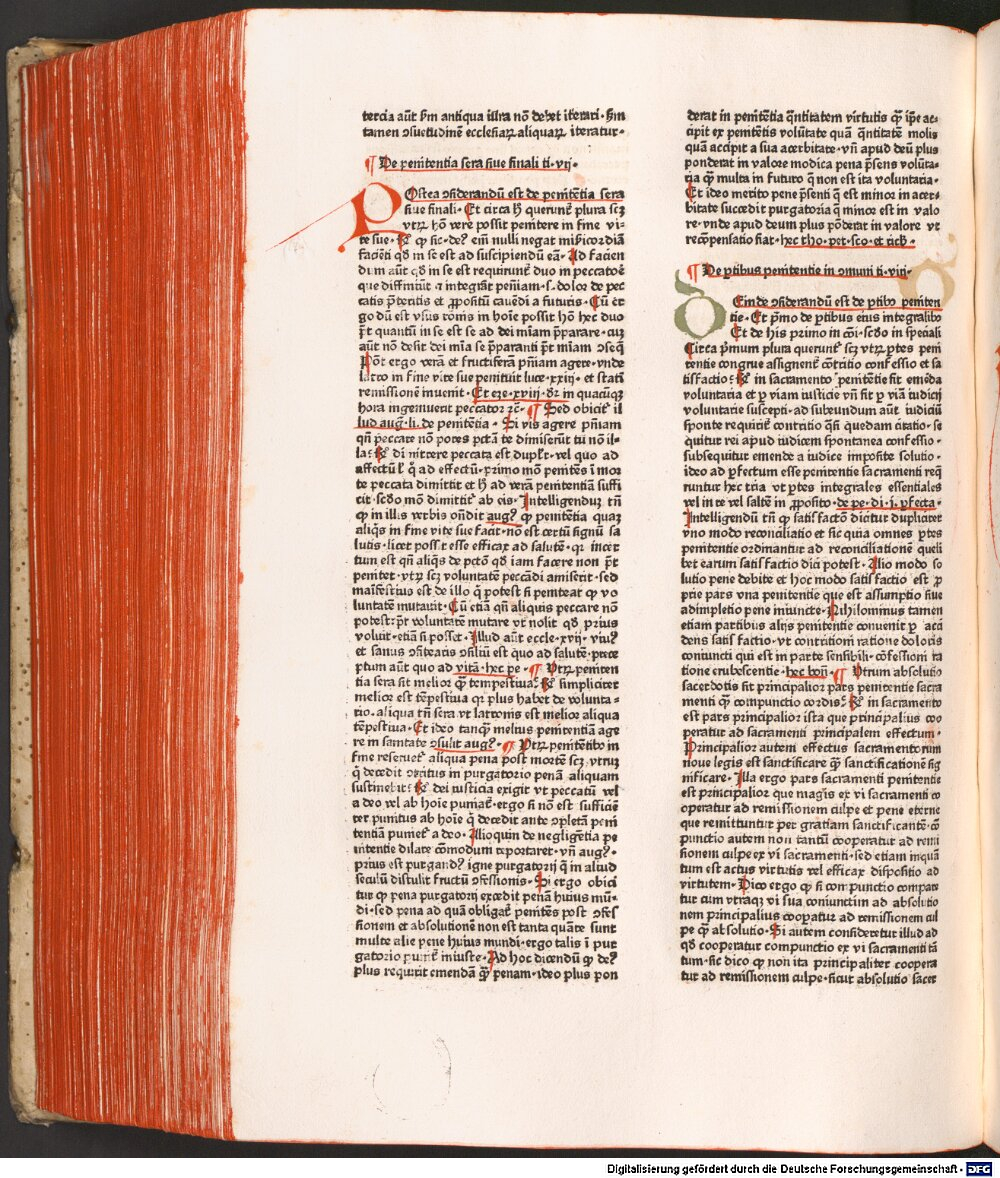 tercia aūt ẜm antiqua illra nō debet iterari · ẜm
tamen ↄsuetudinē ecclesiaꝝ aliquaꝝ iteratur ·
¶ De penitentia sera siue finali ti · vij ·
POstea ↄsiderandū est de penitētia sera
siue finali · Et circa h̄ querunt᷑ plura scꝫ
vtꝝ hō vere possit penitere in fine vi
te sue · R̄ ꝙ sic · deꝰ eni᷑ nulli negat mi᷑icordiā
faciēti qd̄ in se est ad suscipiendū eā · Ad facien
dum aūt qd̄ in se est requirunt᷑ duo in peccatoꝛe
que diffiniūt ⁊ integrāt pen̄iam · s · doloꝛ de pec
catis p̄teritis et ꝓpositū cauēdi a futuris · Cū er
go dū est vsus rōnis in hoīe possit hō hec duo
p̄t quantū in se est se ad dei mīam p̄parare · cuꝫ
aūt nō desit dei mīa se p̄paranti p̄t mīam ↄseq̄
Pōt ergo verā et fructiferā pn̄iam agere · vnde
latro in fine vite sue penituit luce · xxiij · et stati᷑
remissionē inuenit · Et eze · xviij · dꝛ in quacūqꝫ
hora ingemuerit peccatoꝛ ⁊c̄ · ¶ Sed obicit᷑ il
lud aug · li · de penitētia · Si vis agere pn̄iam
qn̄ peccare nō potes pctā te dimiserūt tu nō il-
la · R̄ dimittere peccata est dupl᷑r · vel quo ad
affectū l᷑ q̊ ad effectū · primo mō penitēs i᷑ moꝛ
te peccata dimittit et h̄ ad verā penitentiā suffi
cit · scd̄o mō dimittit᷑ ab eis · Intelligenduꝫ tn̄
ꝙ in illis verbis on̄dit augꝰ ꝙ penitētia quaꝫ
aliq̄s in fine vite sue facit · nō est certū signū sa
lutis · licet possit esse efficax ad salutē · qꝛ incer
tum est qn̄ aliq̄s de pctō qd̄ iam facere non p̄t
penitet · vtꝝ scꝫ voluntatē peccādi amiserit · sed
maīfestius est de illo q̄ potest si peniteat ꝙ vo
luntatē mutauit · Cū etiā qn̄ aliquis peccare nō
potest · p̄t voluntatē mutare vt nolit qd̄ prius
voluit · etiā si posset · Illud aūt eccle · xvij · viuꝰ
et sanus ↄfitearis ↄsiliū est quo ad salutē · prece
ptum aūt quo ad vitā · hec pe · ¶ Vtꝝ peniten
tia sera sit melioꝛ ꝙ̄ tempestiua · R̄ simpliciter
melioꝛ est tēpestiua qꝛ plus habet de volunta-
rio · aliqua tn̄ sera vt latronis est melioꝛ aliqua
tēpestiua · Et ideo tanꝙ̄ melius penitentiā age
re in sanitate ↄsulit augꝰ · ¶ Vtꝝ penitētibꝰ in
fine reseruet᷑ aliqua pena post moꝛtē scꝫ vtruꝫ
q̇ decedit ↄtritus in purgatoꝛio penā aliquam
sustinebit · R̄ dei iusticia exigit vt peccatū vel
a deo vel ab hoīe puniat᷑ · ergo si nō est sufficiē
ter punitus ab hoīe q̇ decedit ante ↄpletā peni
tentiā puniet᷑ a deo · Alioquin de negligētia pe
nitentie dilate cōmodum repoꝛtaret · vn̄ augꝰ ·
prius est purgandꝰ igne purgatoꝛij q̇ in aliud
seculū distulit fructū ↄfessionis · Si ergo obici
tur ꝙ pena purgatoꝛij excedit penā huius mū-
di · sed pena ad quā obligat᷑ penitēs post ↄfes
sionem et absolutionē non est tanta quāte sunt
multe alie pene huius mundi · ergo talis i᷑ pur
gatoꝛio punit᷑ iniuste · Ad hoc dicendū ꝙ deꝰ
plus requirit emendā ꝙ̄ penam · ideo plus pon
derat in penitētia q̄ntitatem virtutis ꝙ̄ ip̄e ac-
cipit ex penitētis volūtate quā q̄ntitatē molis
quā accipit a sua acerbitate · vn̄ apud deū plus
ponderat in valoꝛe modica pena p̄sens volūta-
ria ꝙ̄ multa in futuro q̄ non est ita voluntaria ·
Et ideo merito pene p̄senti q̄ est minoꝛ in acer-
bitate succedit purgatoꝛia q̄ minoꝛ est in valo
re · vnde apud deum plus pōderat in valoꝛe vt
recōpensatio fiat · hec tho · pet · sco · et ricꝰ ·
¶ De ꝑtibus penitentie in ↄmuni ti · viij ·
DEinde ↄsiderandū est de ꝑtibꝰ peniten
tie · Et p̄mo de ꝑtibus eius integralibꝰ
Et de his primo in cōi · scd̄o in speciali
Circa p̄mum plura querunt᷑ scꝫ vtꝝ ꝑtes peni
tentie congrue assignent᷑ cōtritio confessio et sa
tisfactio · R̄ in sacramento penitētie fit emēda
voluntaria et ꝑ viam iusticie vn̄ fit ꝑ viā iudicij
voluntarie suscepti · ad subeundum aūt iudiciū
sponte requirit᷑ contritio q̄si quedam citatio · se
quitur rei apud iudicem spontanea confessio ·
subsequitur emende a iudice imposite solutio ·
ideo ad ꝑfectum esse penitentie sacramenti req̇
runtur hec tria vt ꝑtes integrales essentiales
vel in re vel saltē in ꝓposito · de pe · di · j · ꝑfecta ·
Intelligendū tn̄ ꝙ satisfactō dicitur dupliciter
vno modo reconciliatio et sic quia omnes ꝑtes
penitentie oꝛdinantur ad reconciliationē queli
bet earum satisfactio dici potest · Alio modo so
lutio pene debite et hoc modo satisfactio est ꝓ
prie pars vna penitentie que est assumptio siue
adimpletio pene iniuncte · Nihilominus tamen
etiam partibus alijs penitentie conuenit ꝑ acci
dens satisfactio · vt contritioni ratione doloꝛis
coniuncti qui est in parte sensibili · cōfessioni ra
tione erubescentie · hec bon̄ · ¶ Vtrum absolutio
sacerdotis sit principalioꝛ pars penitentie sacra
menti ꝙ̄ compunctio coꝛdis · R̄ in sacramento
est pars principalioꝛ ista que principalius coo
peratur ad sacramenti principalem effectum ·
Principalioꝛ autem effectus sacramentoꝛum
noue legis est sanctificare ꝙ̄ sanctificationē sig
nificare · Illa ergo pars sacramenti penitentie
est principalioꝛ que magis ex vi sacramenti co
operatur ad remissionem culpe et pene eterne
que remittuntur per gratiam sanctificantē · cō
punctio autem non tantū cooperatur ad remi
sionem culpe ex vi sacramenti · sed etiam inquā
tum est actus virtutis vel efficax dispositio ad
virtutem · Dico ergo ꝙ si compunctio compare
tur cum vtraqꝫ vi sua coniunctim ad absolutio
nem principalius cooꝑatur ad remissionem cul
pe ꝙ̄ absolutio · Si autem consideretur illud ad
qd̄ cooperatur compunctio ex vi sacramenti tā
tum · sic dico ꝙ non ita principaliter coopera
tur ad remissionem culpe · sicut absolutio sacer
Digitalisierung gefördert durch die Deutsche Forschungsgemeinschaft - DFG